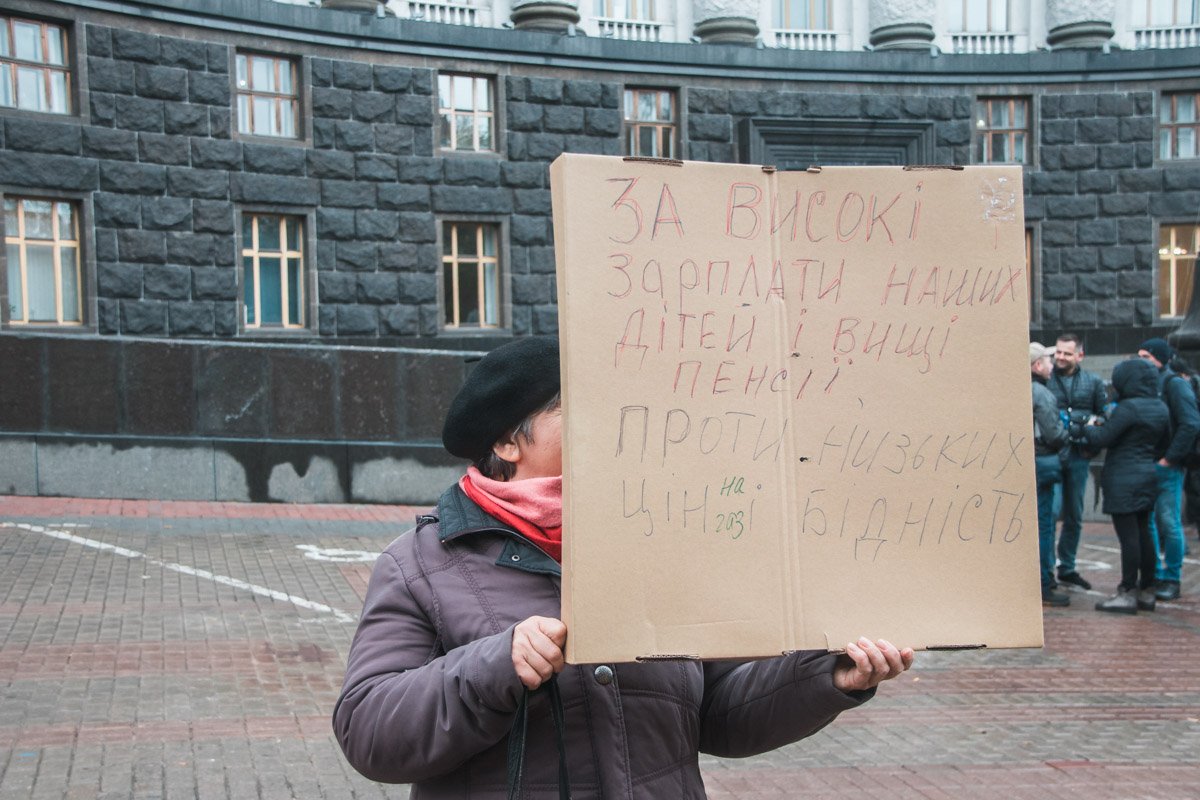 ЗА ВИСОКІ
ЗАРПЛАТИ НАШИХ
ДІТЕЙ І ВИЩІ
ПЕНСІЇ
ПРОТИ НИЗЬКИХ
ЦІН на газ і БІДНІСТЬ